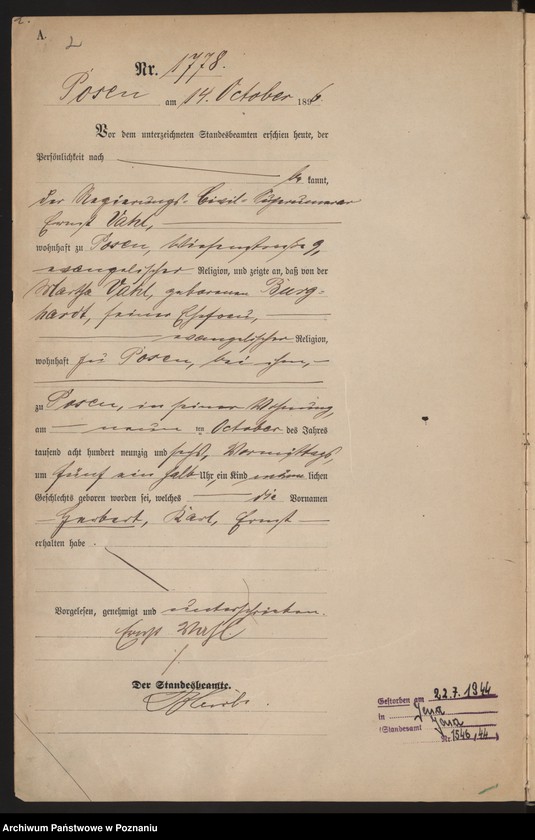 A.
2
Nr. 1778.
Posen am 14. October 1896.
Vor dem unterzeichneten Standesbeamten erschien heute, der
Persönlichkeit nach
be kannt,
der Regierungs-Civil-Supernumerar
Ernst Vahl,
wohnhaft zu Posen, Wiesenstraße 9,
evangelischer Religion, und zeigte an, daß von der
Martha Vahl, geborenen Burg-
hardt, seiner Ehefrau,
evangelischer Religion,
wohnhaft zu Posen, bei ihm,
zu Posen, in seiner Wohnung,
am neun ten October des Jahres
tausend acht hundert neunzig und sechs, Vormittags,
um fünf ein halb Uhr ein Kind männ lichen
Geschlechts geboren worden sei, welches die Vornamen
Herbert, Karl, Ernst
erhalten habe.
Vorgelesen, genehmigt und unterschrieben.
Ernst Vahl
Der Standesbeamte.
Gestorben am 22.7.1944
in Jena
(Standesamt Jena
Nr. 1546/44)
Archiwum Państwowe w Poznaniu